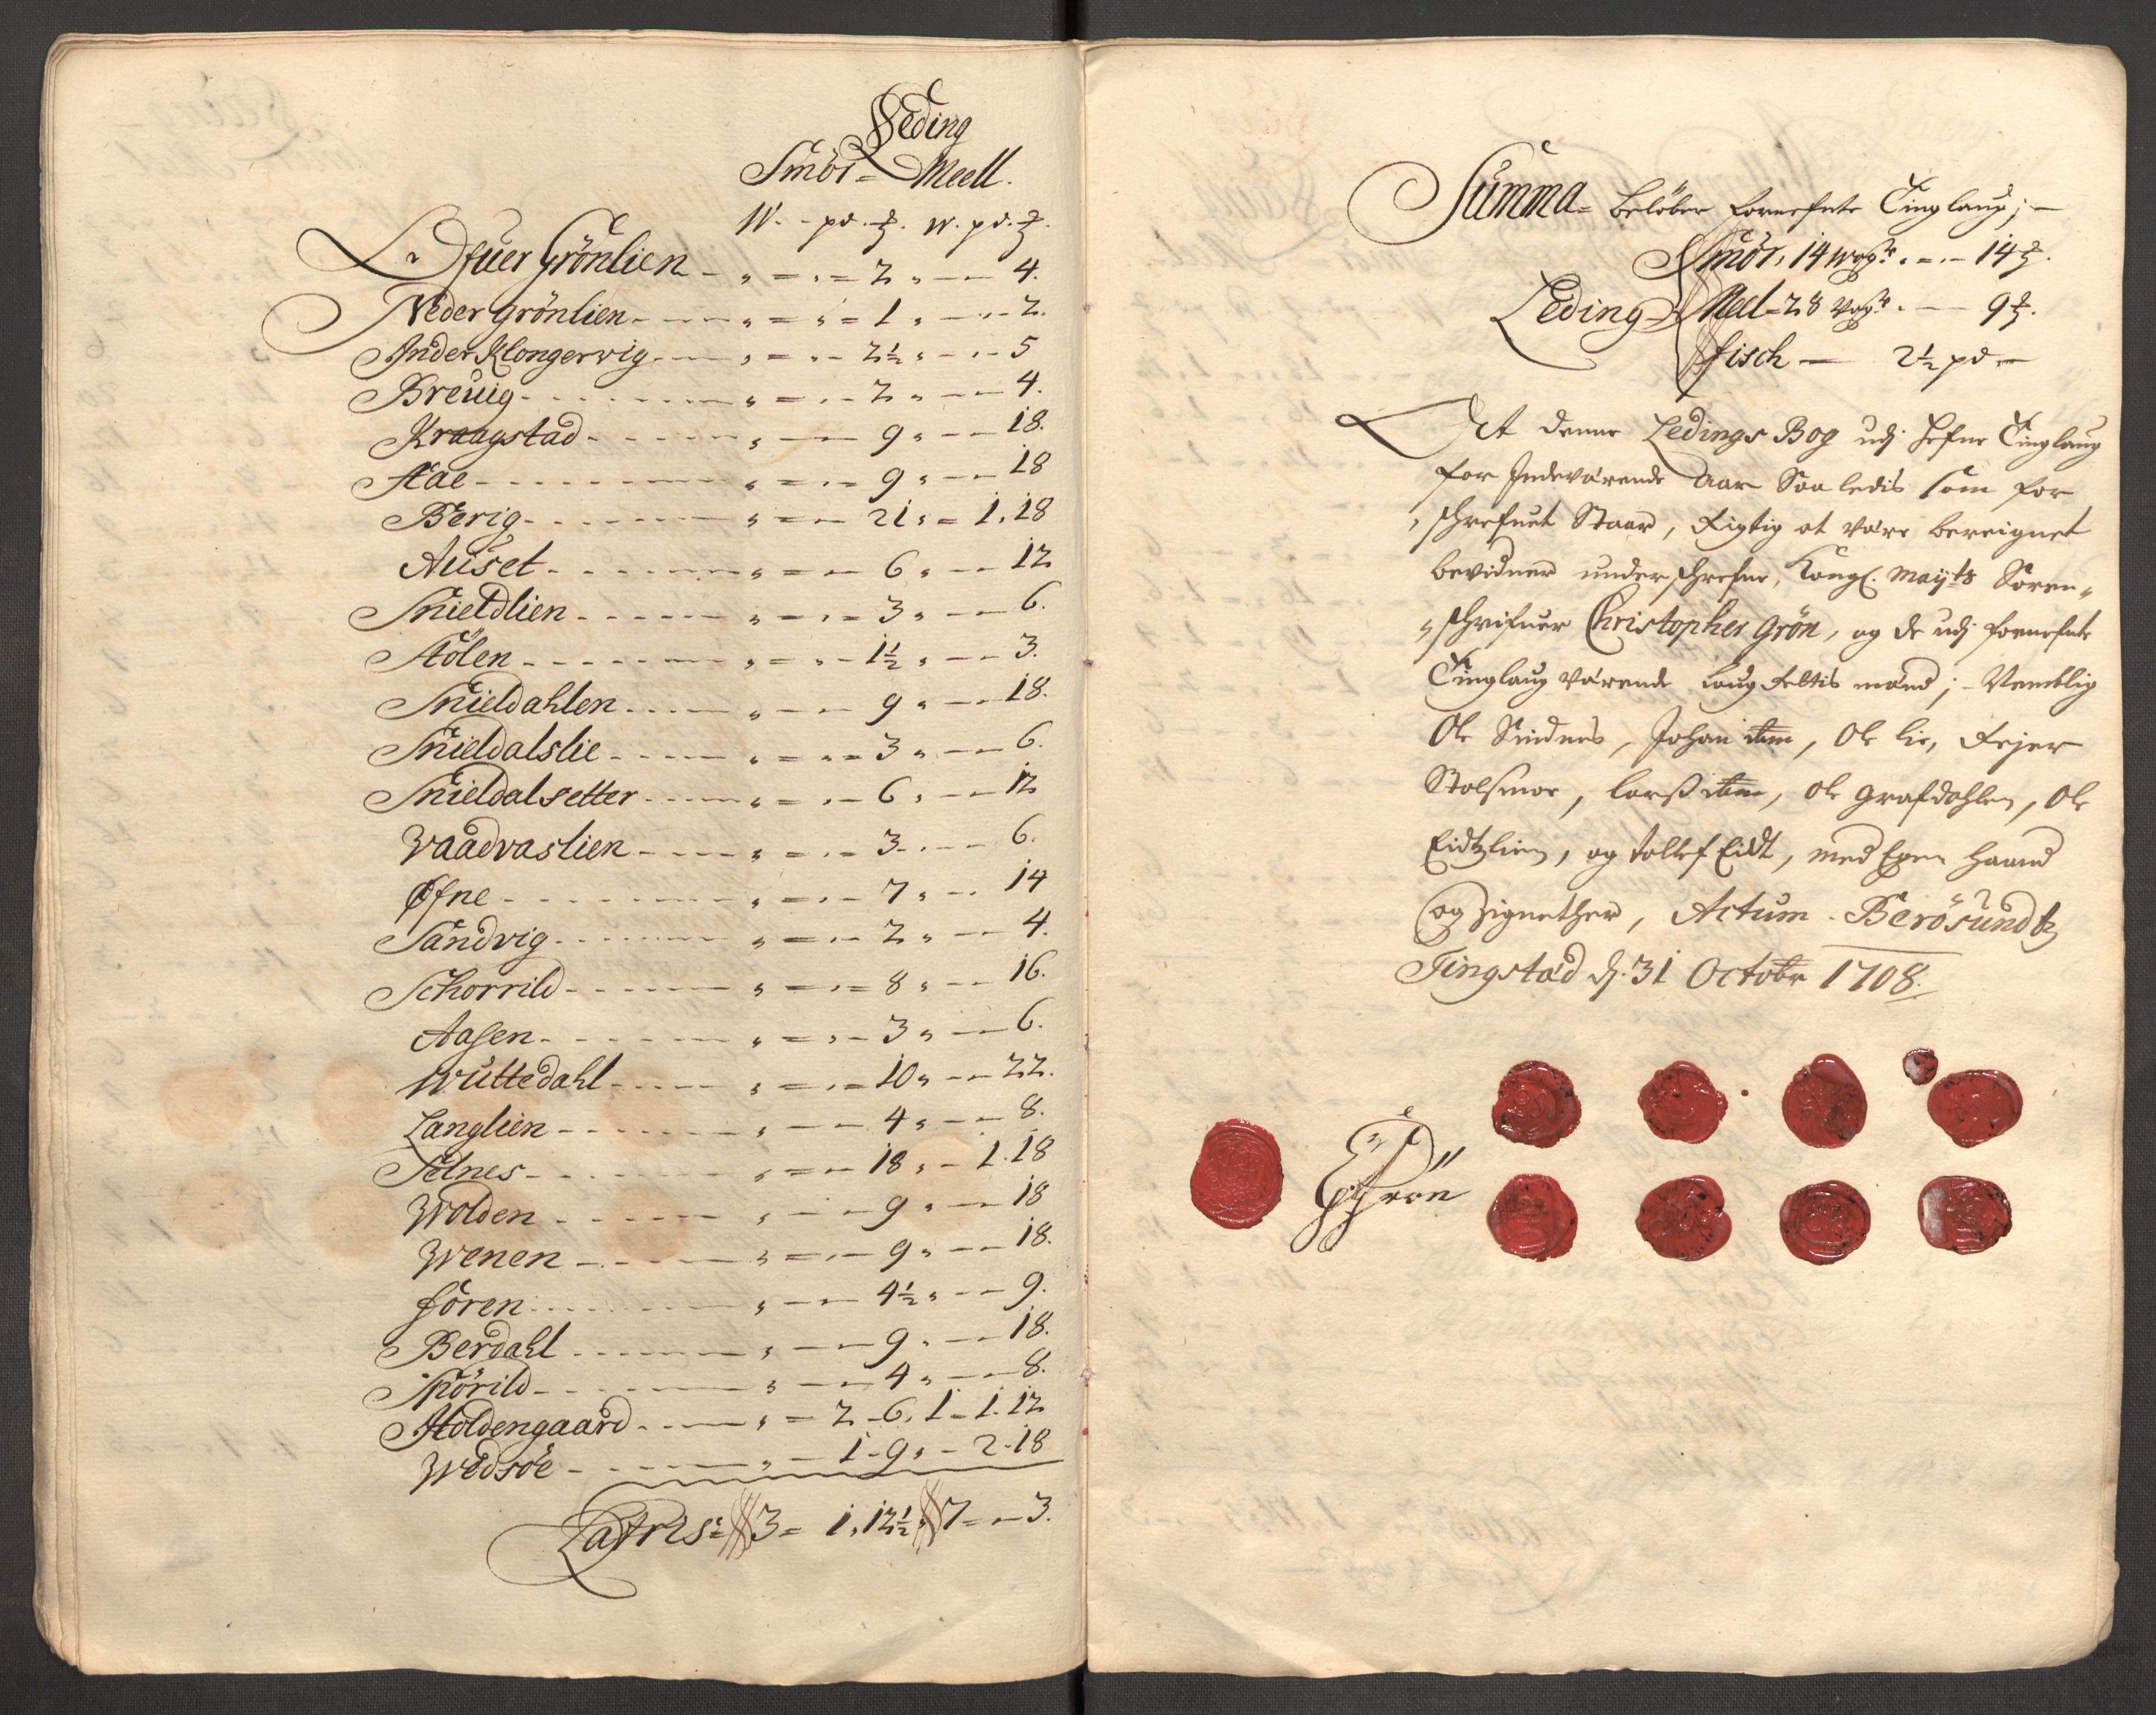 Leding
Smör = Meell.
W. - pd. ℔. W. pd. ℔.
Öfuer Grönlien - " = " = 2 " - - 4.
Neder Grönlien - - - " = " = 1 " - - 2.
Inder Klongervig - - " = " - 2½ " - - 5
Breuig - - - - " = " - 2 " - - 4.
Kraagstad - - - - " - - 9 " - - 18.
Aae - - - - " = " = 9 " - - 18
Berig - - - - " = - 21 " = 1. 18
Auset - - - - " = - 6 " - - 12
Snieldlien - - - - " = " = 3 " - - 6.
Stölen - - - - " = " - 1½ " - - 3.
Snieldahlen - - - - " - - 9 " - - 18.
Snieldalslie - - - - " = - 3 " - - 6.
Snieldalsetter - - - - " = " - 6 " - - 12
Waadvaslien - - - - " = " = 3 - " - - 6.
Øfne - - - - " = " - 7 " - - 14
Sandvig - - - - " = " - 2 " - - 4.
Schorrild - - - - " = " = 8 " - - 16.
Aasen - - - - " = " - 3 " - - 6.
Wuttedahl - - - - " = " = 10 " - - 22.
Langlien - - - - " - - 4 " - - 8.
Selnes - - - - " = - 18 " - 1. 18
Wolden - - - - " - - 9 " - - 18
Wenen - - - - " = " - 9 " - - 18.
Sören - - - - " - - 4½ " - - 9.
Berdahl - - - - " - - 9 " - - 18.
Spörild - - - - " - - 4 " - - 8.
Holdengaard - - - - " = 2 - 6. 1 - 1. 12
Wedsöe - - - - " - 1 - 9 " - 2 - 18
Latris = 3 = 1, 12½ " 7 = - 3.
Summa = belöber forrnefnte Tinglaug ; -
Smör, 14 Wog - - 14 ℔.
Leding - Meel - 28 Vog - - 9 ℔.
fisch - 2½ pd -
At denne Ledings Bog udj Hefne Tinglaug
for Indeværende Aar Saaledis som for
schrefuet Staar, Rigtig at være bereignet
bevidner underschrefne, Kongl. Mayts Soren-
schrifuer Christopher Grön, og de udj fornefnte
Tinglaug værende Laug Rettis mænd ; - Nemblig
Ole Sindnes, Johan item, Ole Lie, Rejer
Stolsmoe, Larss item, Ole Grafdahlen, Ole
Eidtzlien, og Tollef Eidt, med Egen Haand
og Zignether, Actum - Berösundtz
Tingstad dj. 31 Octobr 1708.
CGrön